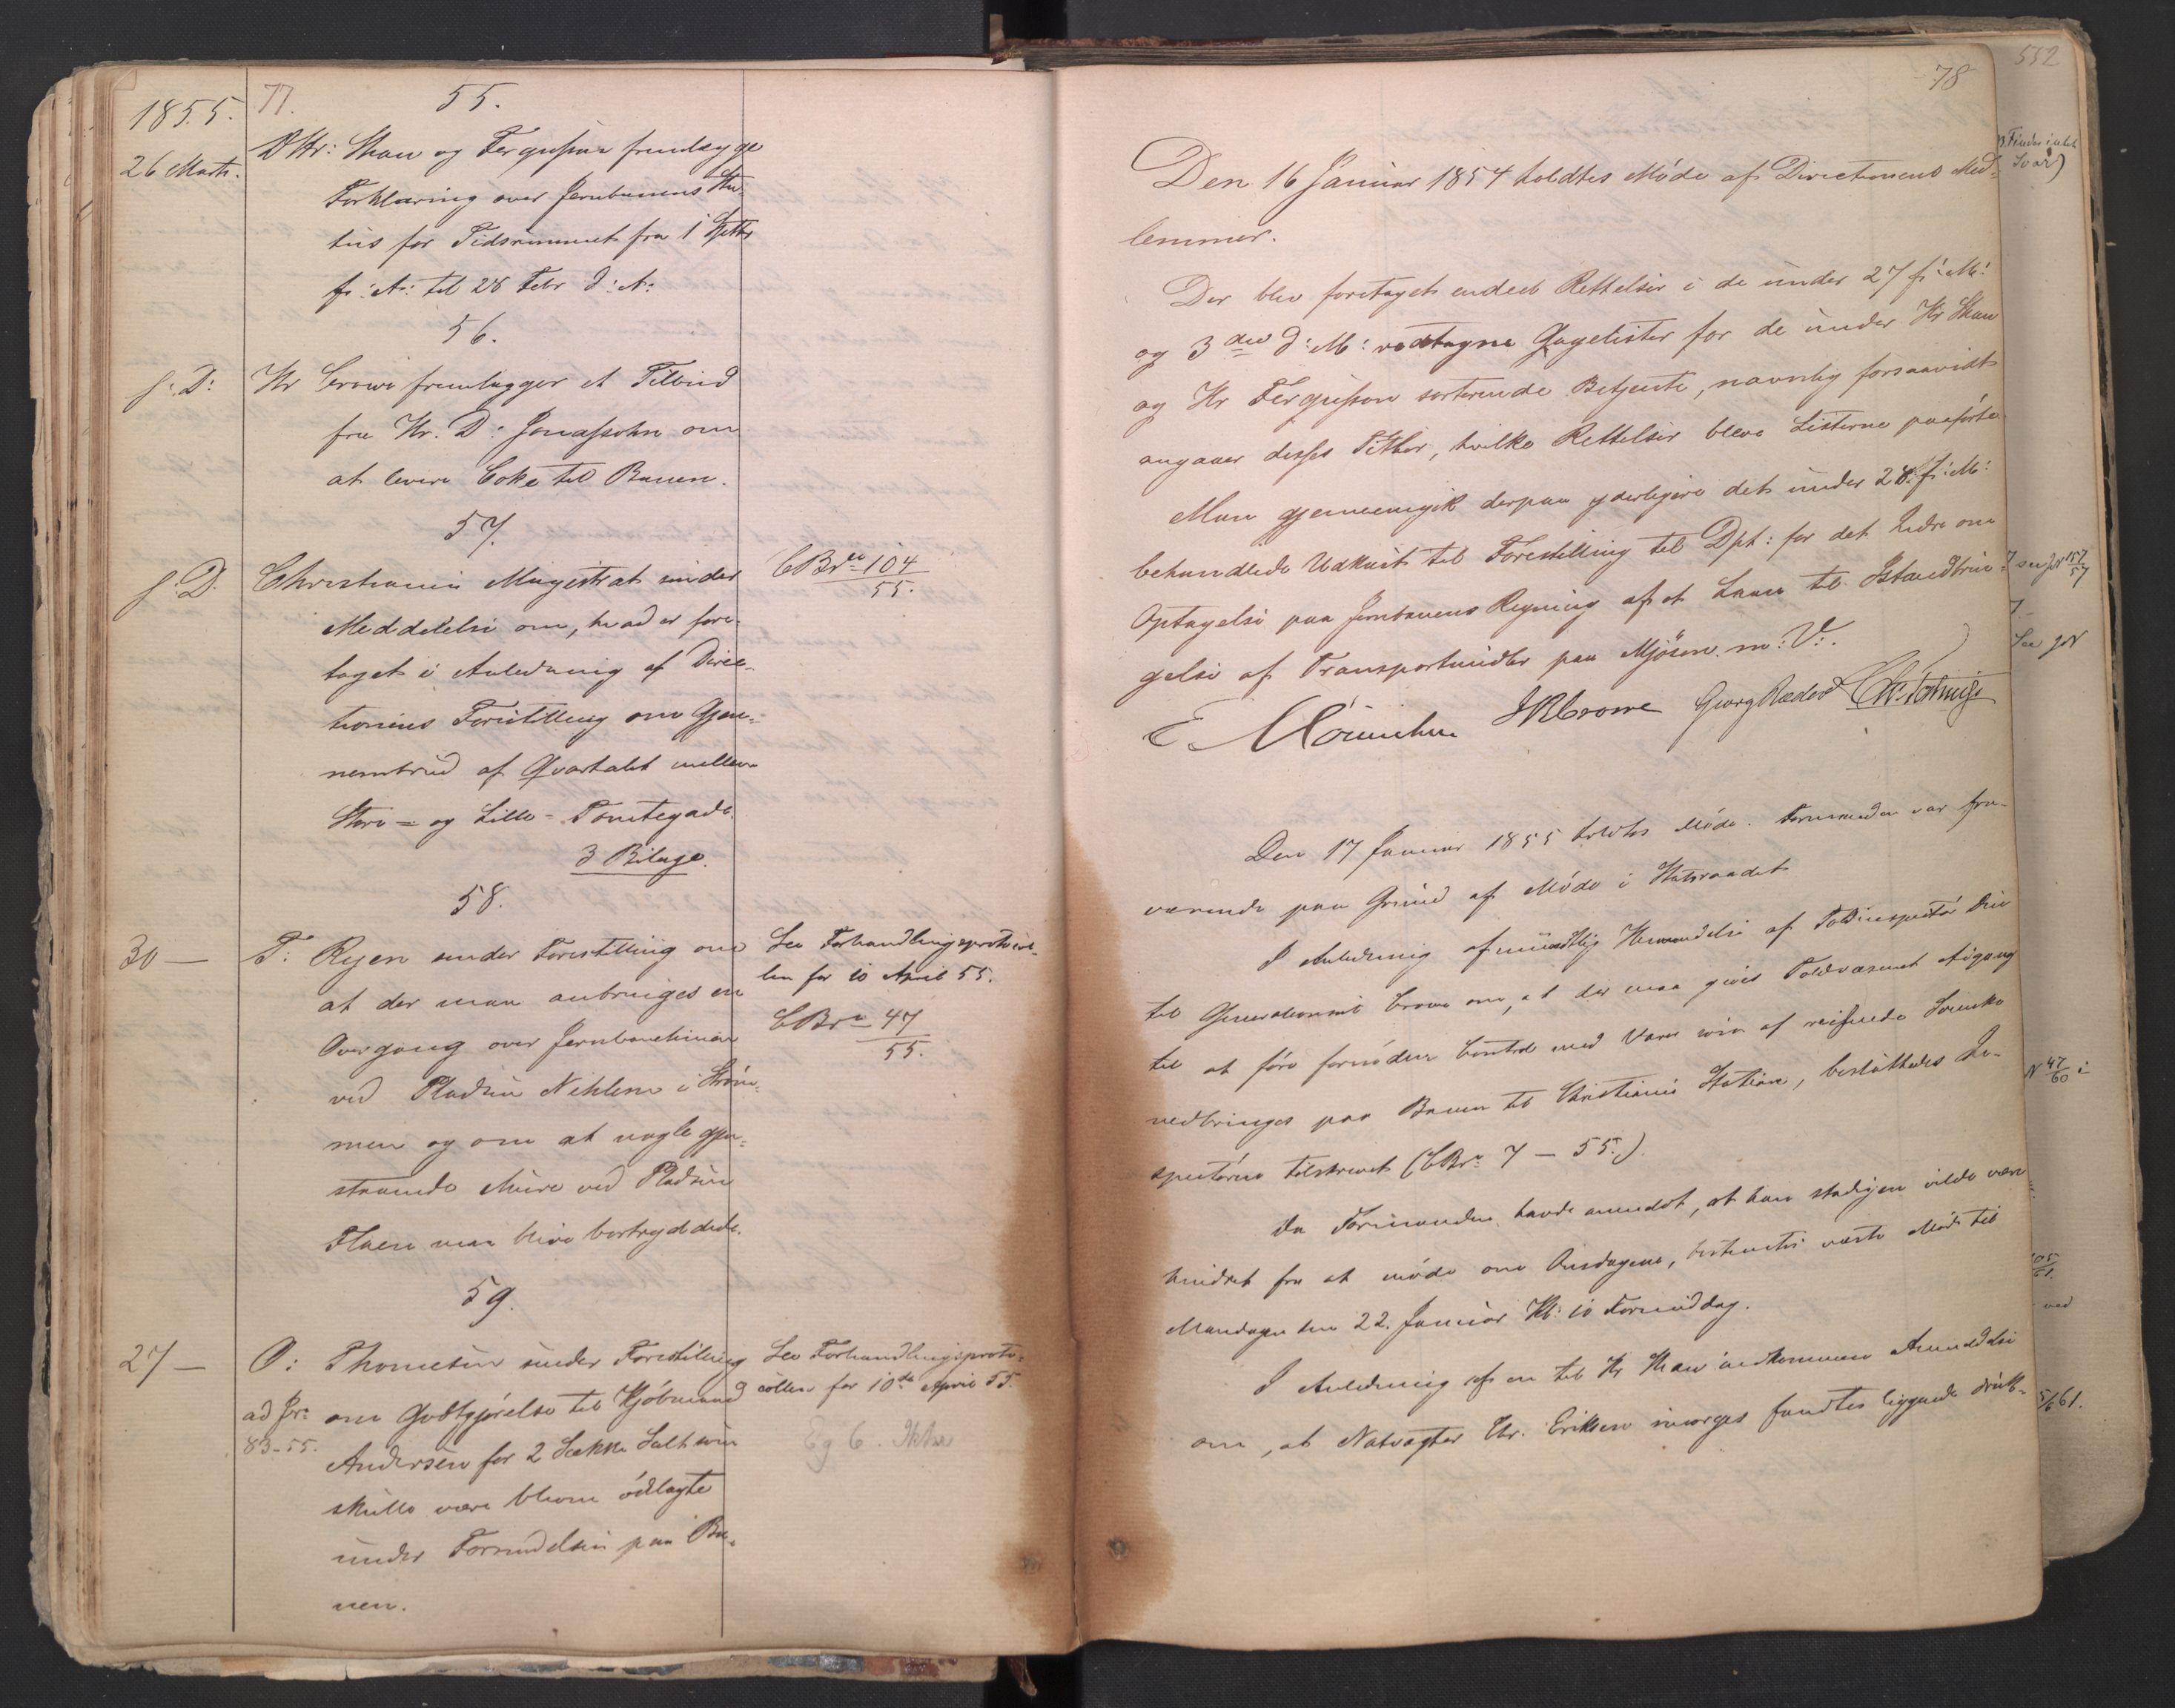 77.
55.
1855.
26 Marts.
D Hr: Shau og Fergusson fremlægge
Forklaring over Jernbanens Sta-
tus for Tidsrummet fra 1 Septbr
f: A: til 28 Febr d: A:
56.
s: D:
Hr Crowe fremlægger et Tilbud
fra Hr. D: Jonassohn om
at levere Coke til Banen.
57.
s: D.
Christiania Magistrat sender
Meddelelse om, hvad er fore-
taget i Anledning af Direc-
tionens Forestilling om Gjen-
nembrud af Qvartalet mellem
Store- og Lille-Tomtegade.
3 Bilage.
CBr 104
55.
58.
30 —
T: Ryen sender Forestilling om
at der maa anbringes en
Overgang over Jernbanelinien
ved Pladsen Nihlen i Strøm-
men og om at nogle gjen-
staaende Mure ved Pladsen
Flaen maa blive bortryddede.
See Forhandlingsprotocol-
len for 10 April 55.
CBr 47
55.
59.
27 —
O: Thomesen sender Forestilling
ad Jr: 83-55.
om Godtgjørelse til Kjøbmand
Andersen for 2 Sække Salt som
skulle være blevne ødelagte
under Forsendelsen paa Ba-
nen.
See Forhandlingsproto-
collen for 10de April 55.
78
Den 16 Januar 1854 holdtes Møde af Directionens Med-
lemmer.
Der blev foretaget endeel Rettelser i de under 27 f: M:
og 3die d: M: vedtagne Gagelister for de under Hr Shau
og Hr Fergusson sorterende Betjente, navnlig forsaavidt
angaaer disses Titler, hvilke Rettelser bleve Listerne paaførte
Man gjennemgik derpaa yderligere det under 28. f: M:
behandlede Udkast til Forestilling til Dpt: for det Indre om
Optagelse paa Jernbanens Regning af et Laan til Istandbrin-
gelse af Transportmidler paa Mjøsen m: V:.
E Mørnichen JRCrowe Georg Ræder
Den 17 Januar 1855 holdtes Møde. Formanden var fra-
værende paa Grund af Møde i Statsraadet
I Anledning af mundtlig Henvendelse af Toldinspectør
til Generalconsul Crowe om, at der maa gives Toldvæsenet Adgang
til at føre fornøden Control med Varer som af reisende Svenske
nedbringes paa Banen til Christiania Station, besluttedes In-
spectøren tilskrevet (CBr: 7 — 55.)
Da Formanden havde anmeldt, at han stadigen vilde være
hindret fra at møde om Onsdagene, bestemtes næste Møde til
Mandagen den 22. Januar Kl: 10 Formiddag.
I Anledning af en til Hr Shau indkommen Anmeldelse
om, at Natvagter Chr. Eriksen imorges fandtes liggende druk-
552
Svar)
157
57
See
N 47
60
5/6 61.
ved